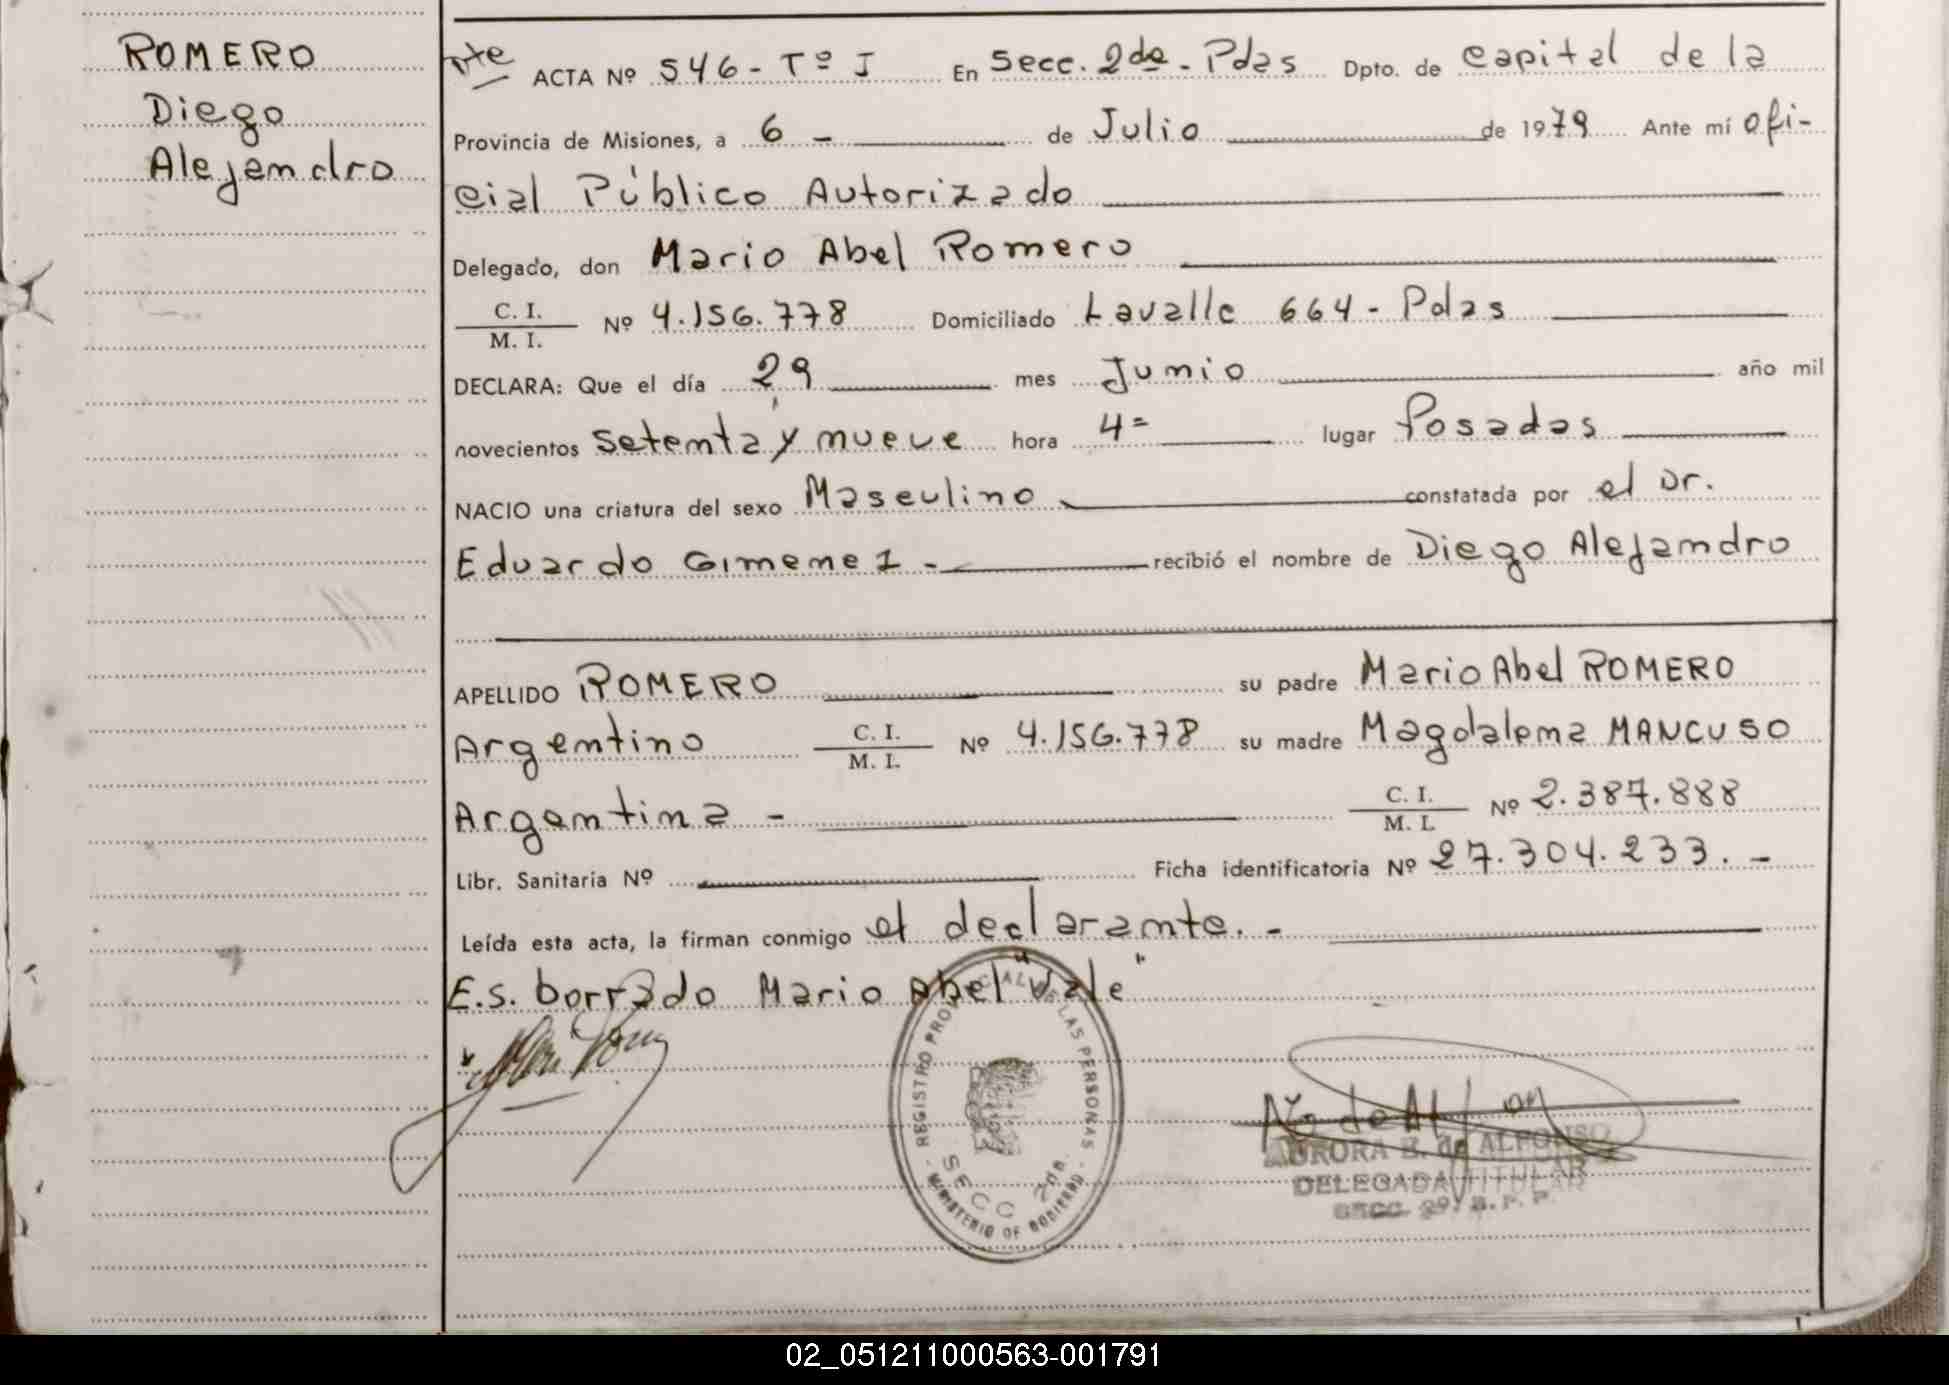 ROMERO
Diego
Alejandro
nte ACTA Nº 546 - Tº I En Secc. 2da - Pdas Dpto. de Capital de la
Provincia de Misiones, a 6 - de Julio de 1979 Ante mí ofi-
cial Público Autorizado
Delegado, don Mario Abel Romero
C. I.
M. I.
Nº 4.156.778 Domiciliado Lavalle 664 - Pdas
DECLARA: Que el día 29 mes Junio año mil
novecientos setenta y nueve hora 4= lugar Posadas
NACIO una criatura del sexo Masculino constatada por el Dr.
Eduardo Gimenez - recibió el nombre de Diego Alejandro
APELLIDO ROMERO su padre Mario Abel ROMERO
Argentino C. I. M. I. Nº 4.156.778 su madre Magdalena MANCUSO
Argentina - C. I. M. I. Nº 2.387.888
Libr. Sanitaria Nº Ficha identificatoria Nº 27.304.233. -
Leída esta acta, la firman conmigo el declarante. -
E.s. borrado Mario Abel "Vale"
REGISTRO PROVINCIAL DE LAS PERSONAS
SECC 2da.
MINISTERIO DE GOBIERNO
AURORA E. de ALFONSO
DELEGADA TITULAR
SECC. 2º
02_051211000563-001791